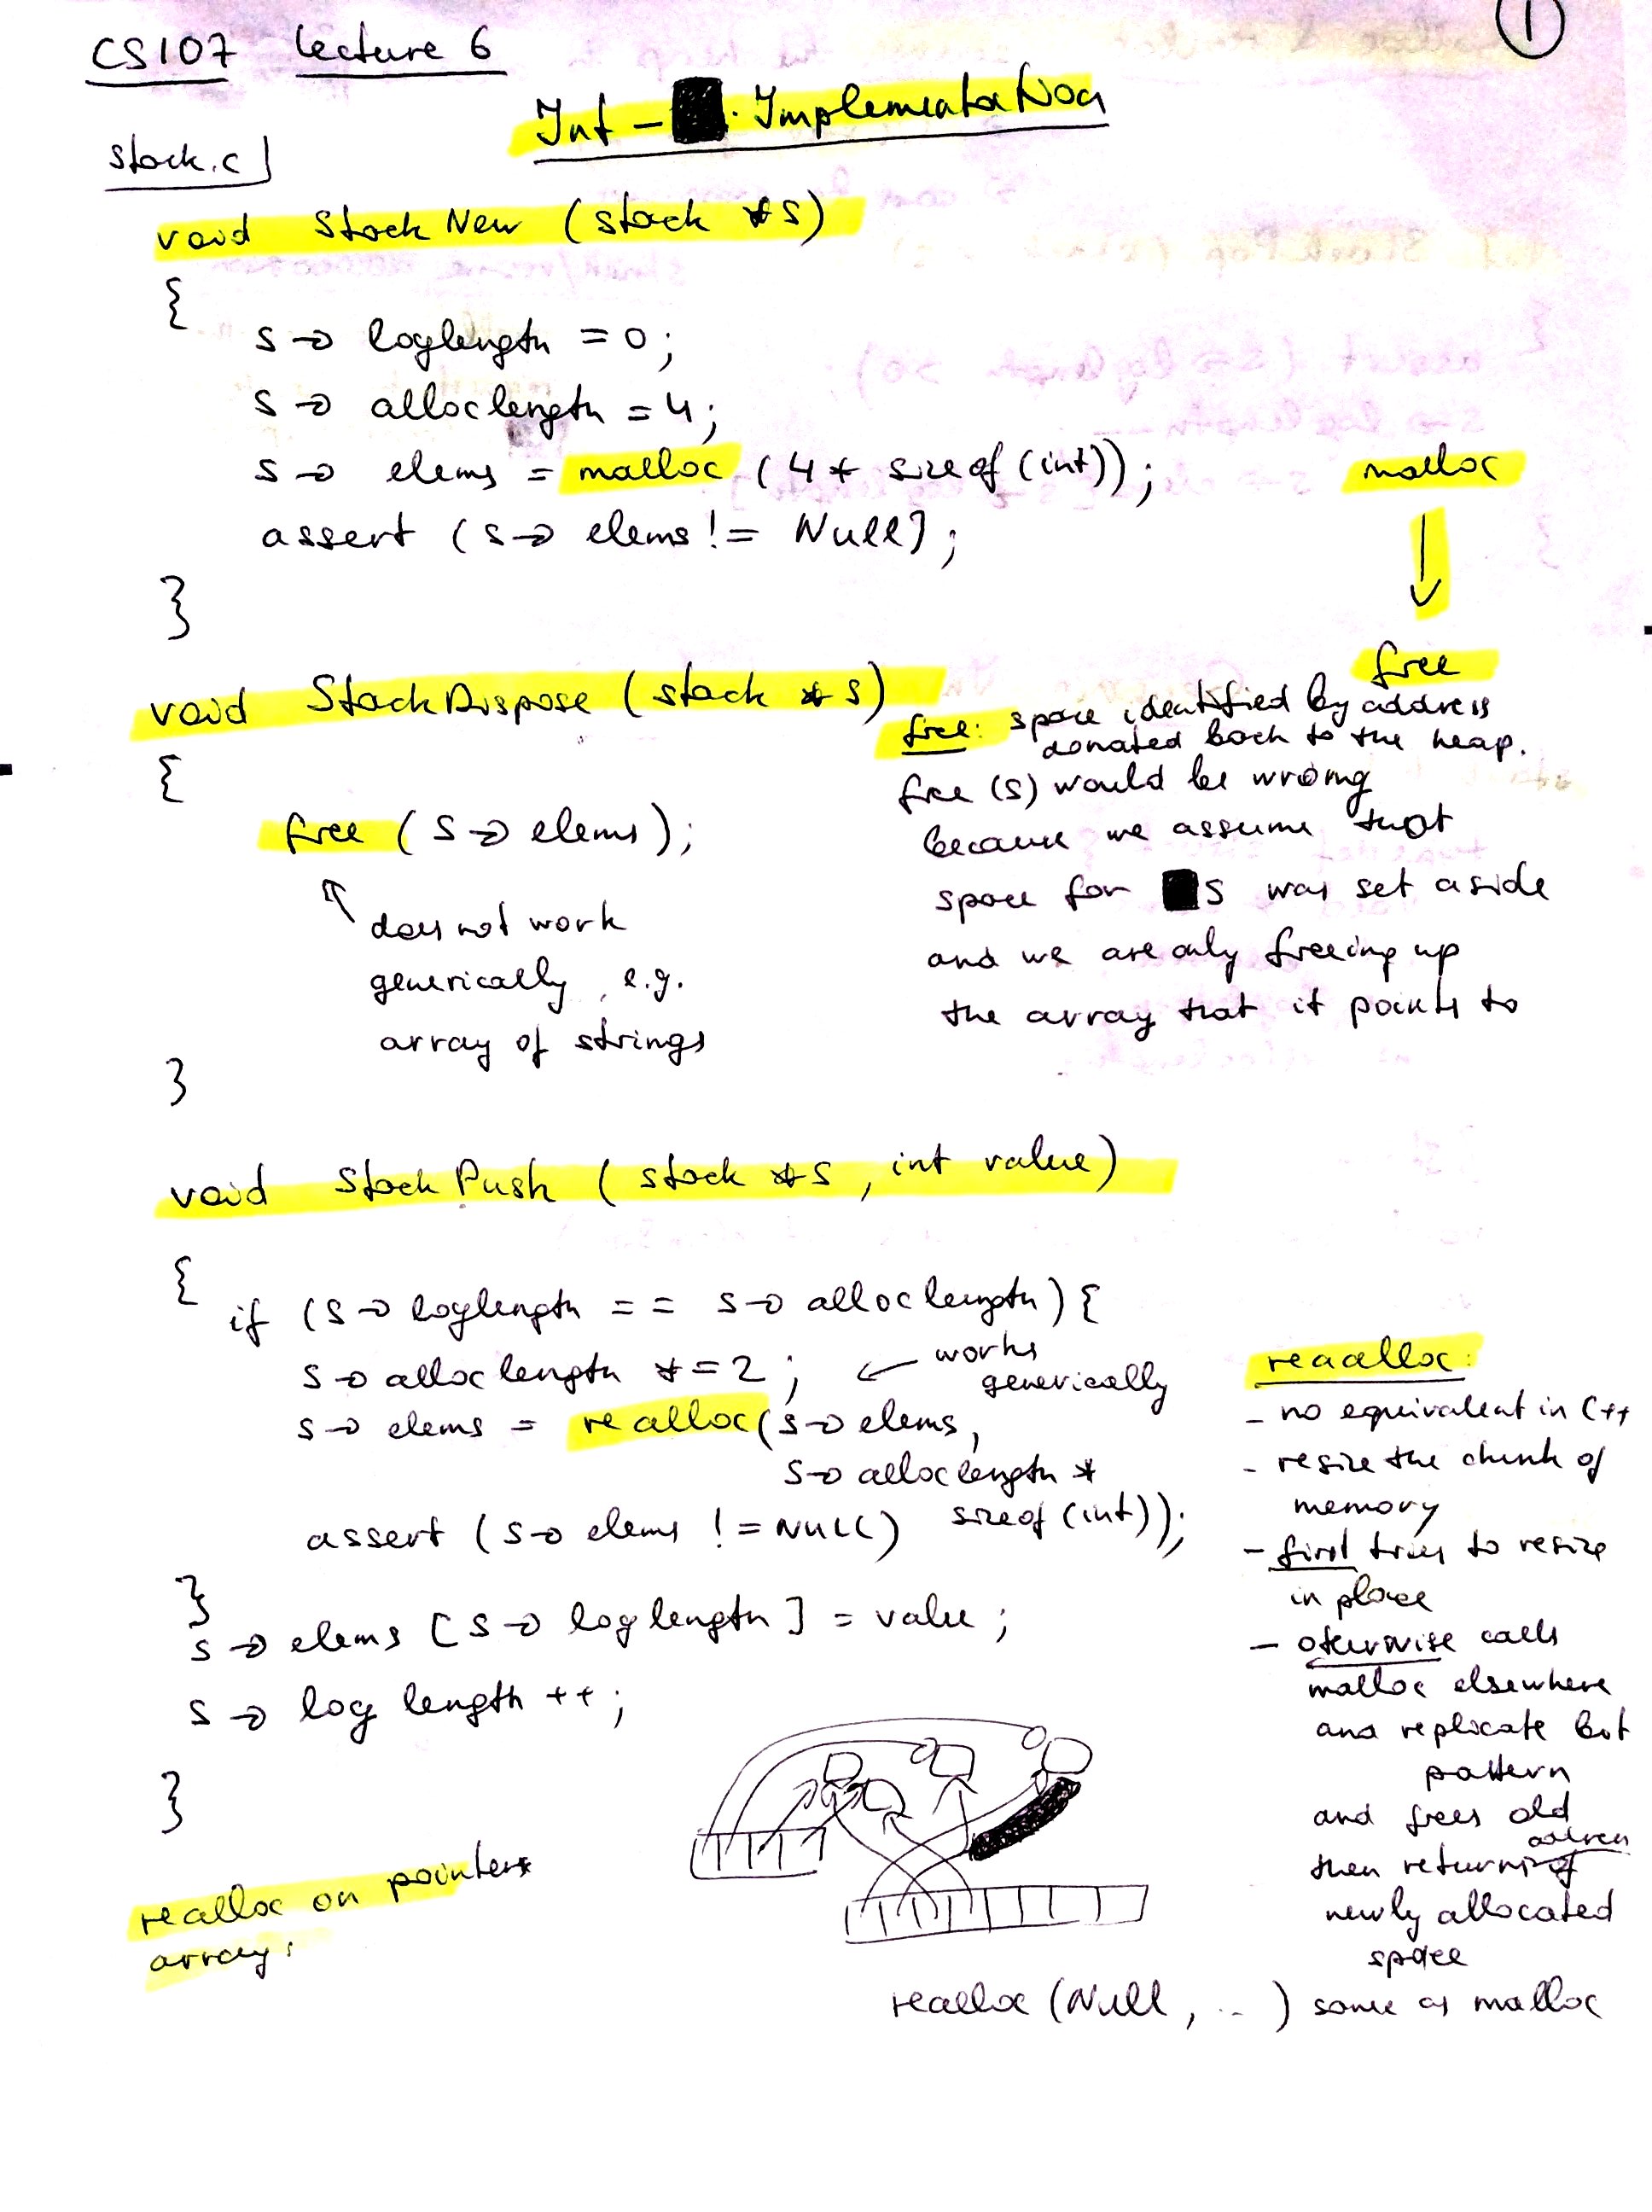 CS107 lecture 6
1
Int - Implementation
stack.c
void StackNew (stack *s)
{
s → loglength = 0;
s → alloclength = 4;
s → elems = malloc (4 * sizeof (int));
assert (s → elems != Null);
}
malloc
↓
free
void StackDispose (stack * s)
{
free (s → elems);
does not work
generically, e.g.
array of strings
}
free: space identified by address
donated back to the heap.
free (s) would be wrong
because we assume that
space for s was set aside
and we are only freeing up
the array that it points to
void Stack Push (stack *s, int value)
{
if (s → loglength == s → alloclength) {
s → alloclength *= 2; ← works
generically
s → elems = realloc (s → elems,
s → alloclength *
sizeof (int));
assert (s → elems != NULL)
}
s → elems [s → loglength] = value;
s → log length ++;
}
reaalloc:
- no equivalent in C++
- resize the chunk of
memory
- first tries to resize
in place
- otherwise calls
malloc elsewhere
and replicate bit
pattern
and frees old
then return
newly allocated
space
realloc on pointer
array:
realloc (Null, ...) same as malloc